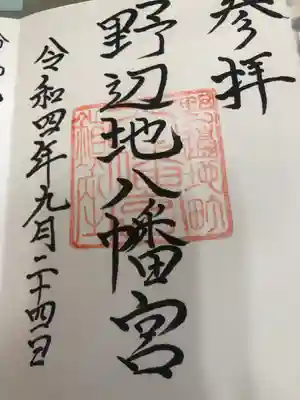 参拝
野辺地八幡宮
令和四年九月二十四日